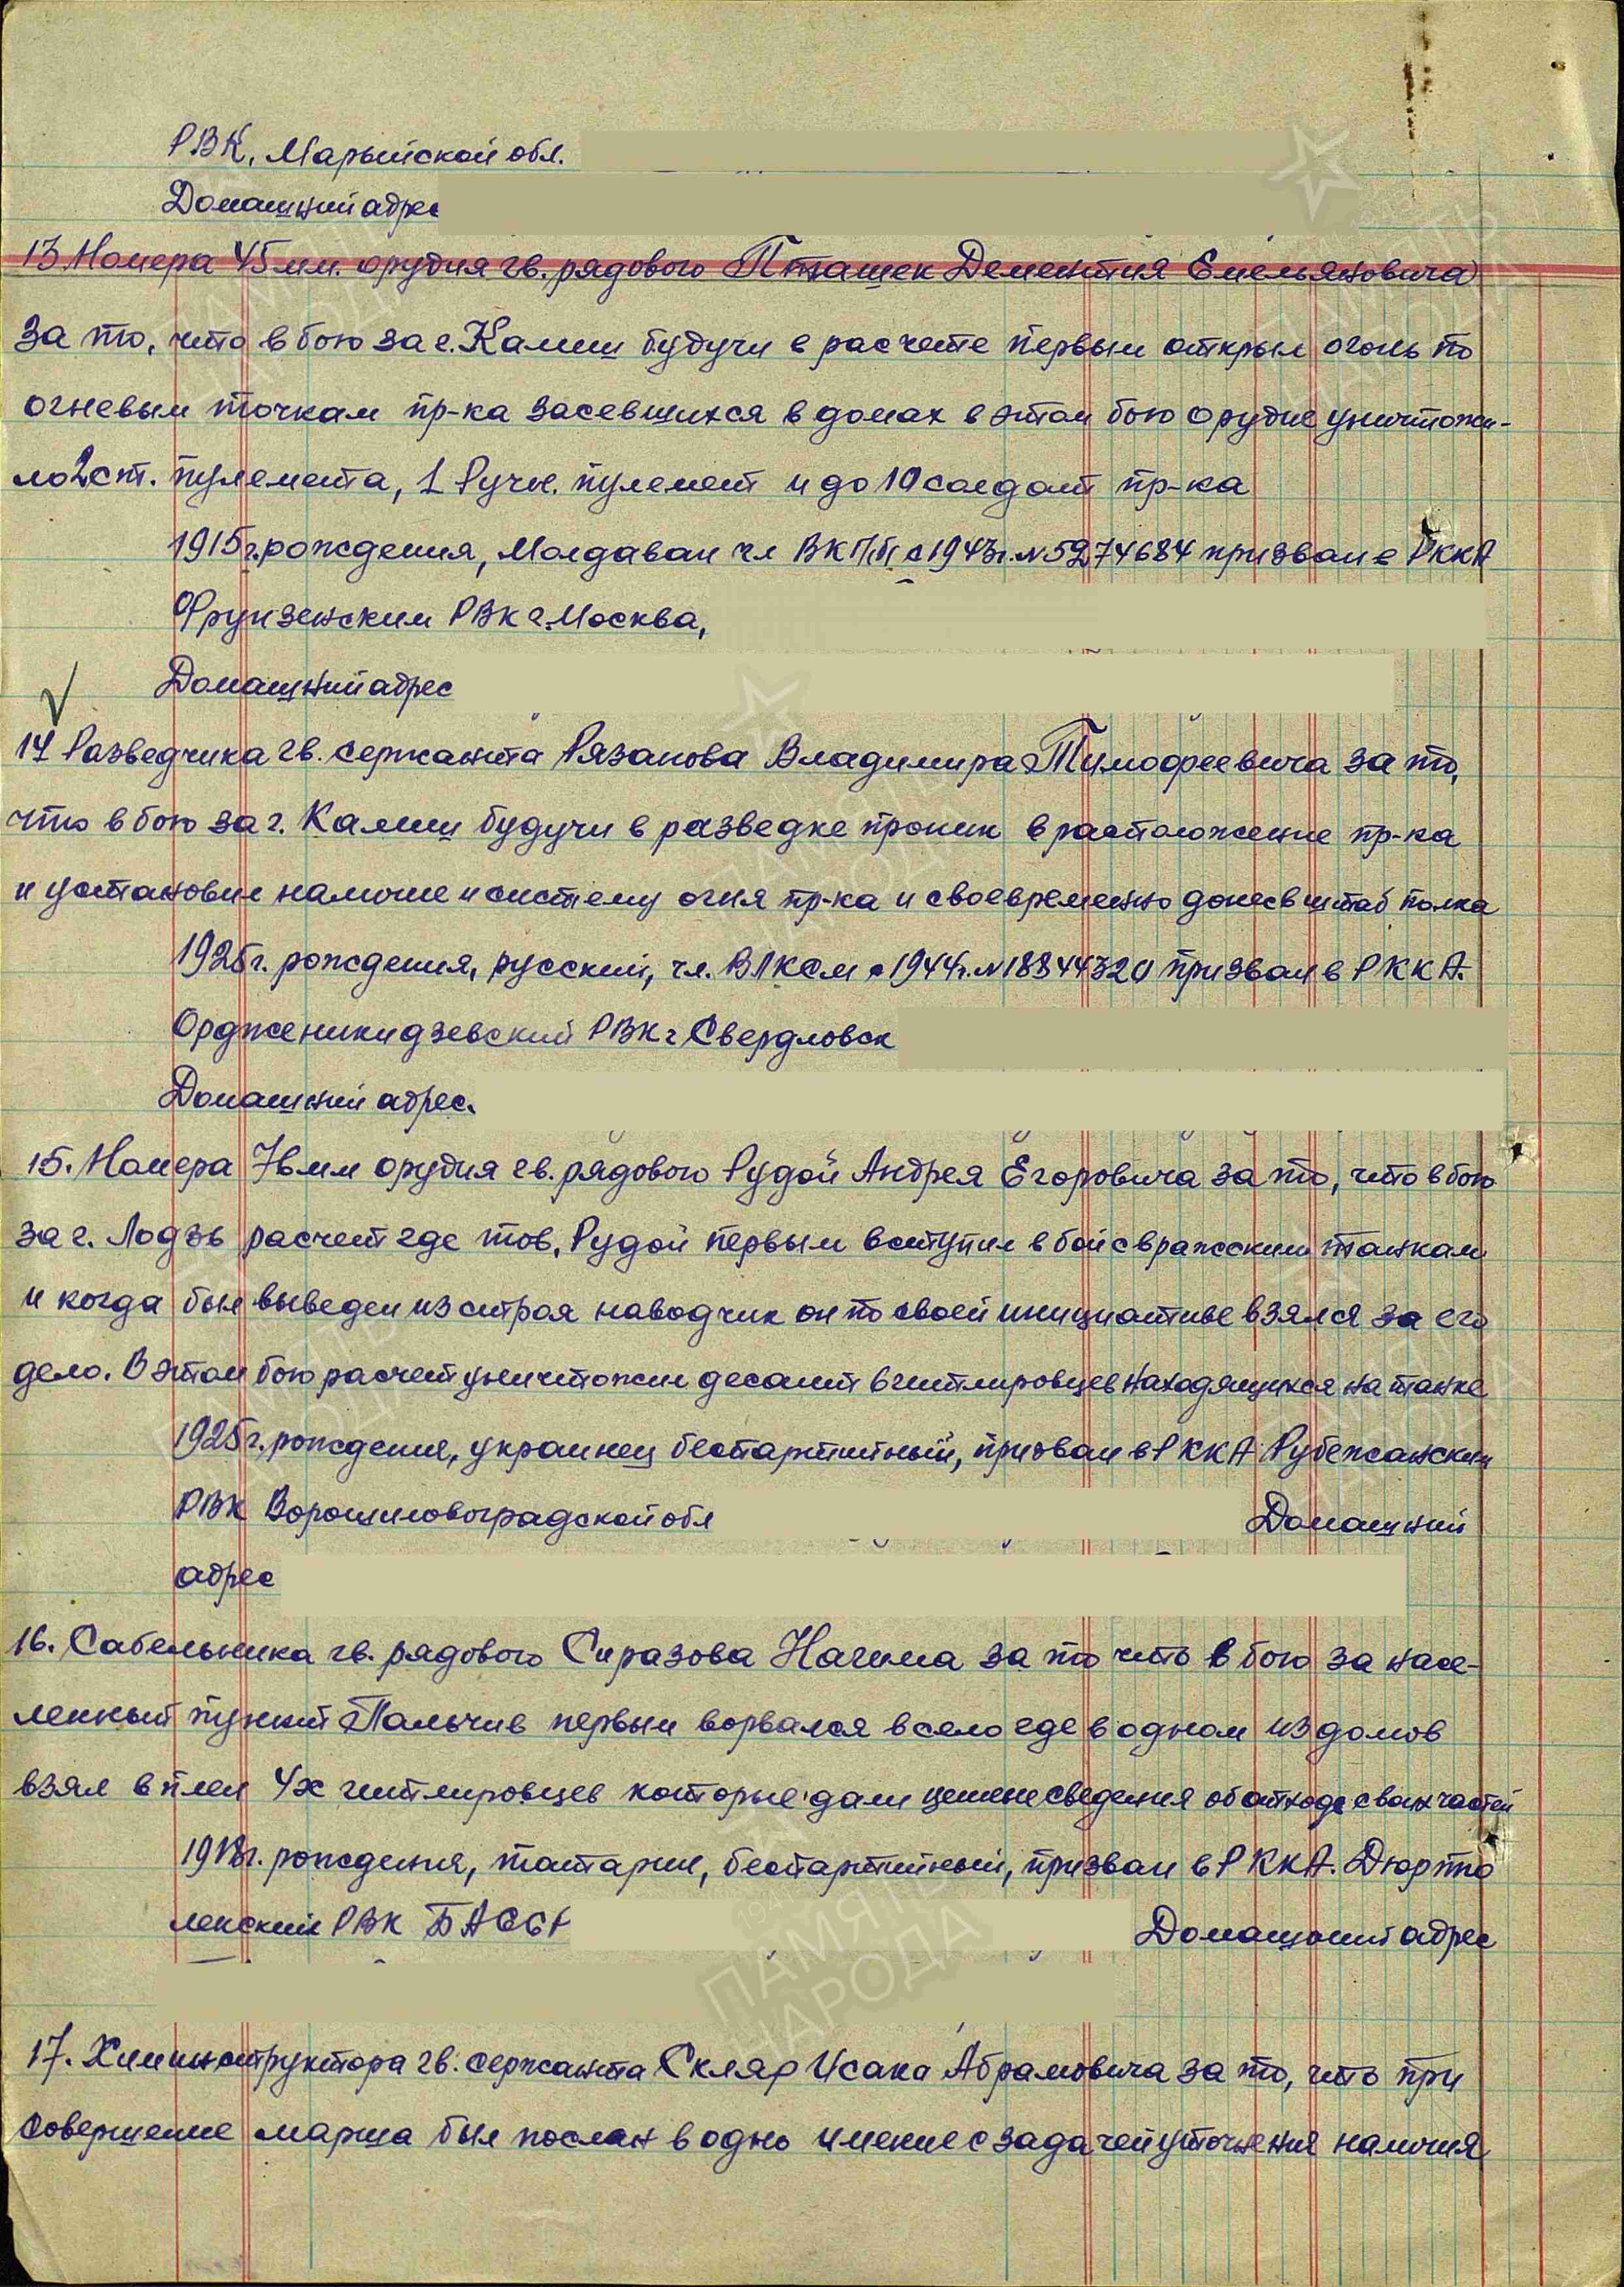 РВК, Марыйской обл.
Домашний адрес
13 Номера 45 мм. орудия гв. рядового Пташек Дементия Емельяновича
за то, что в бою за г. Калиш будучи в расчете первым открыл огонь по
огневым точкам пр-ка засевшихся в домах в этом бою орудие уничтожи-
ло 2 ст. пулемета, 1 ручн. пулемет и до 10 солдат пр-ка
1915 г. рождения, Молдаван чл ВКП(б) с 1943 г. № 5274684 призван в РККА
Фрунзенским РВК г. Москва,
Домашний адрес
14 Разведчика гв. сержанта Рязанова Владимира Тимофеевича за то,
что в бою за г. Калиш будучи в разведке проник в расположение пр-ка
и установил наличие и систему огня пр-ка и своевременно донес в штаб полка
1925 г. рождения, русский, чл. ВЛКСМ с 1944 г. № 18844320 призван в РККА.
Ордженикидзевский РВК г Свердловск
Домашний адрес.
15. Номера 76 мм орудия гв. рядового Рудой Андрея Егоровича за то, что в бою
за г. Лодзь расчет где тов. Рудой первым вступил в бой с вражеским танкам
и когда был выведен из строя наводчик он по своей инициативе взялся за его
дело. В этом бою расчет уничтожил десант 6 гитлировцев находящихся на танке
1925 г. рождения, украинец беспартийный, призван в РККА Рубежанским
РВК Ворошиловоградской обл Домашний
адрес
16. Сабельника гв. рядового Сиразова Нагима за то что в бою за насе-
ленный пункт Пальчив первым ворвался в село где в одном из домов
взял в плен 4х гитлировцев которые дали ценные сведения об отходе своих частей
1918 г. рождения, татарин, беспартийный, призван в РККА. Дюртю
ленский РВК БАССР
Домашний адрес
17. Химинструктора гв. сержанта Скляр Исака Абрамовича за то, что при
совершение марша был послан в одно имение с задачей уточнения наличия
ПАМЯТЬ
НАРОДА